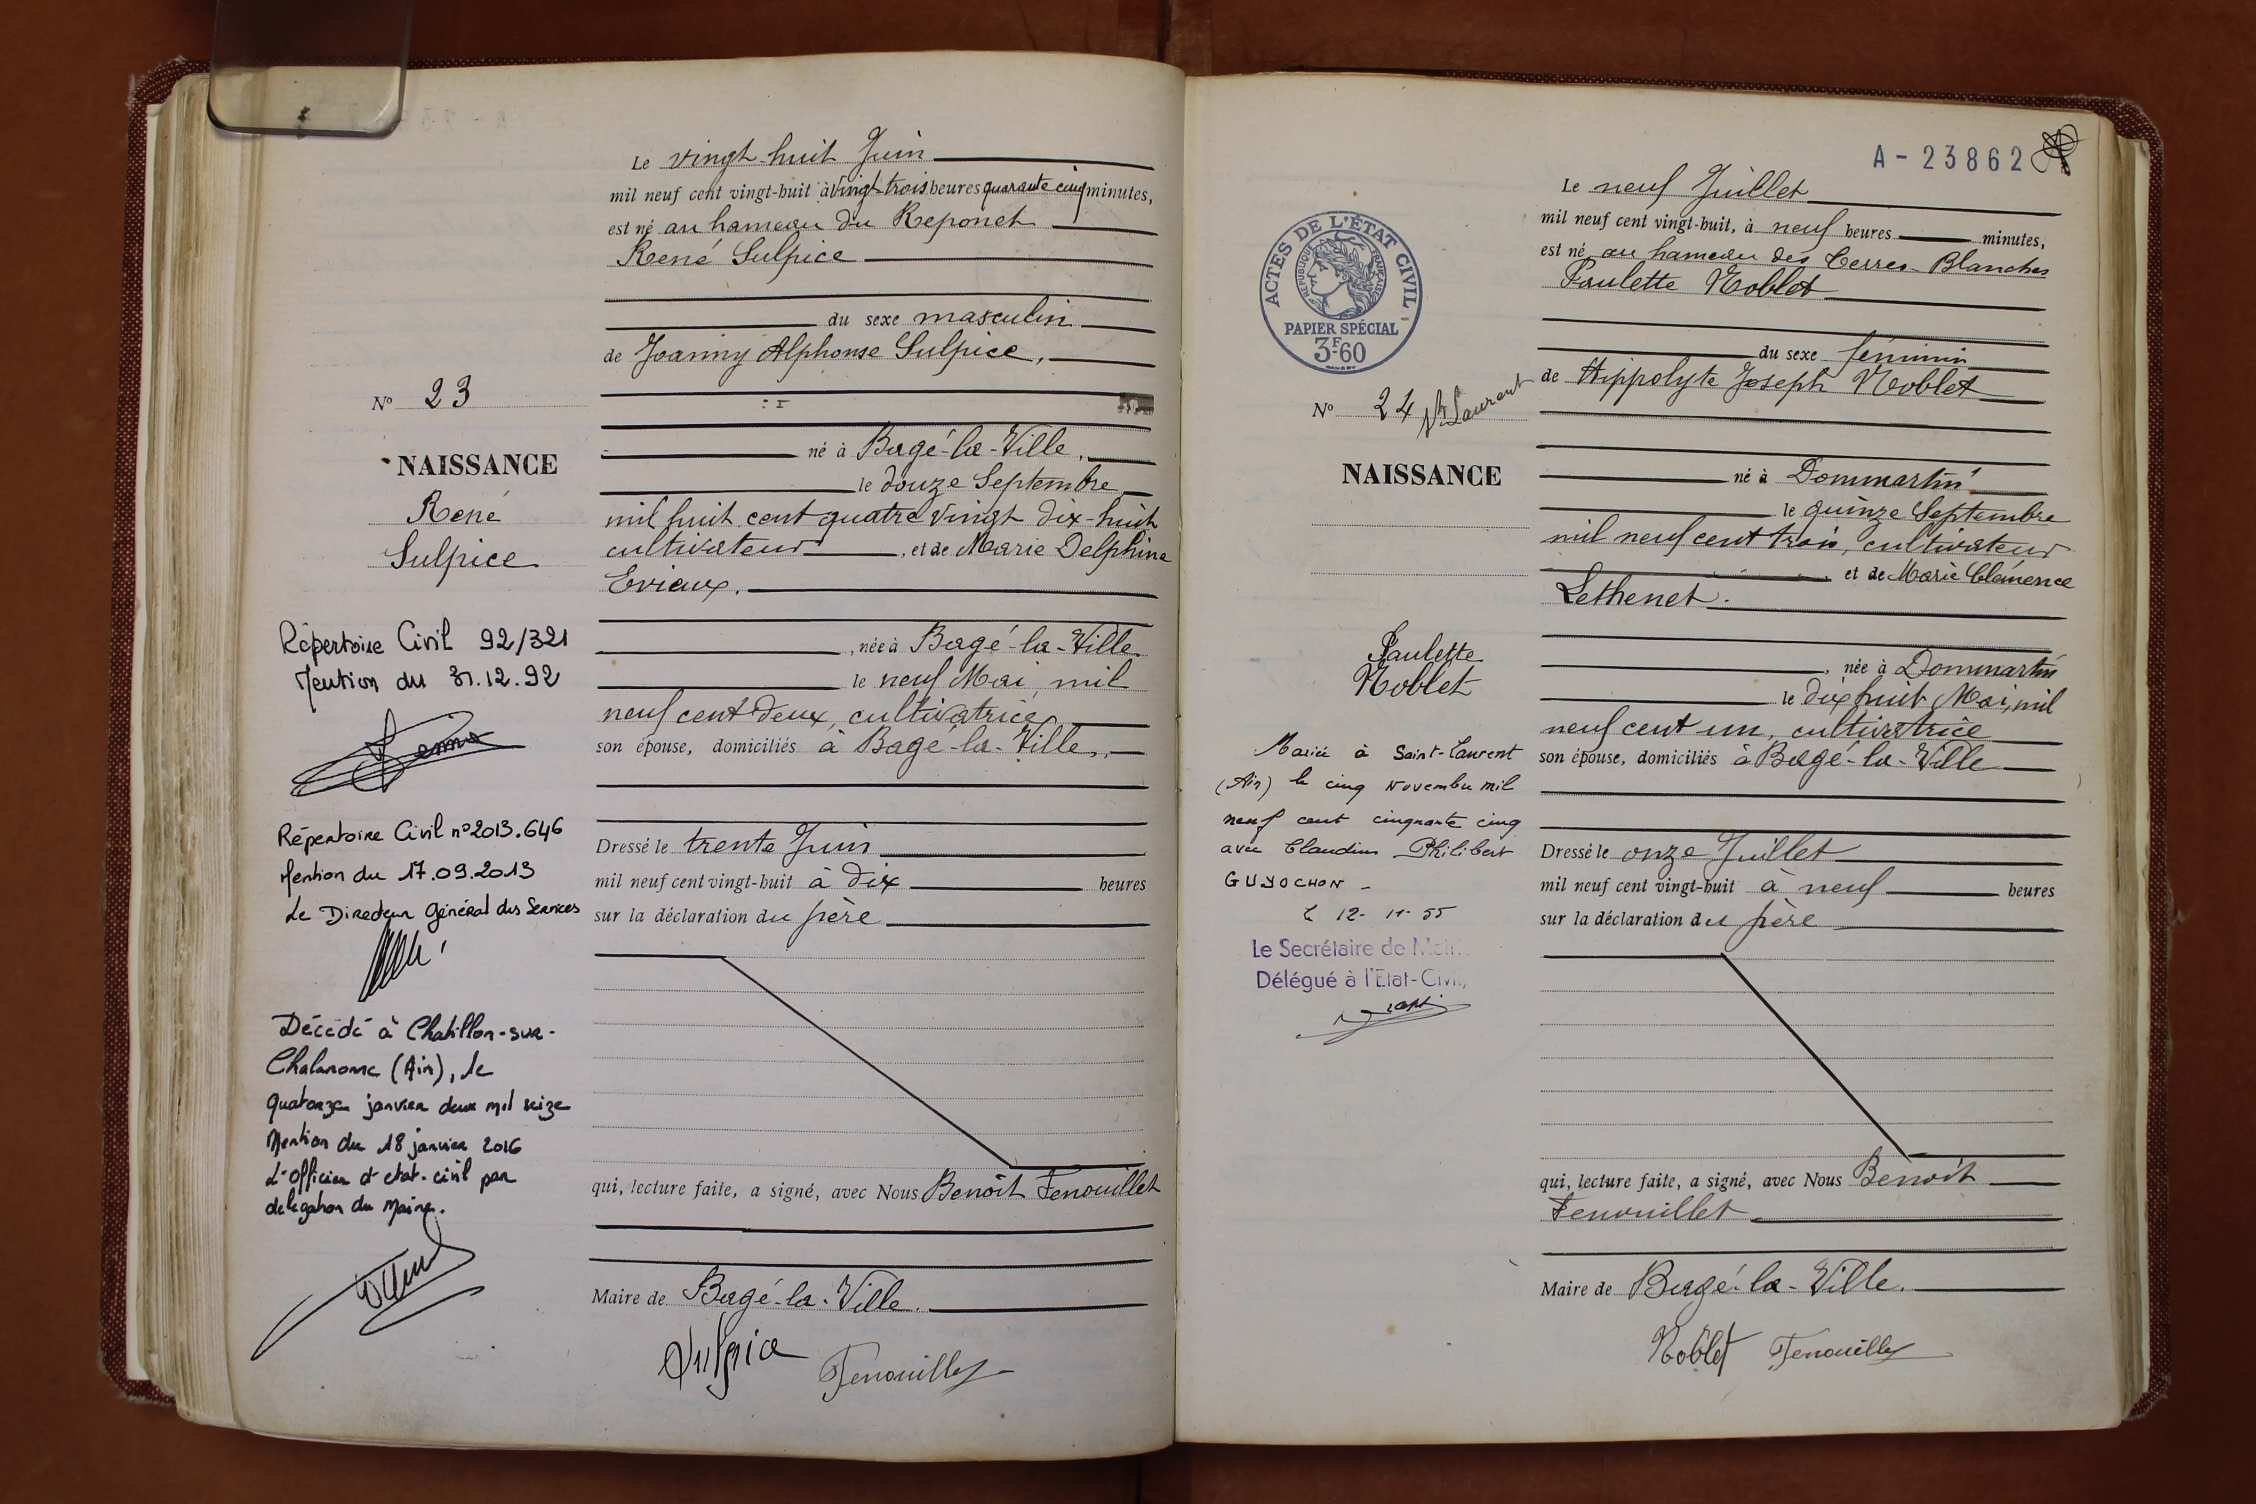 Le vingt-huit Juin
mil neuf cent vingt-huit à vingt-trois heures quarante cinq minutes,
est né au hameau du Reponet
René Sulpice
du sexe masculin
de Joanny Alphonse Sulpice,
né à Bagé-la-Ville,
le douze Septembre
mil huit cent quatre vingt dix-huit
cultivateur, et de Marie Delphine
Evieux.
, née à Bagé-la-Ville
le neuf Mai mil
neuf cent deux, cultivatrice,
son épouse, domiciliés à Bagé-la-Ville.
Dressé le trente Juin
mil neuf cent vingt-huit à dix heures
sur la déclaration du père
qui, lecture faite, a signé, avec Nous Benoît Fenouillet
Maire de Bagé-la-Ville.
Sulpice Fenouillet
No 23
NAISSANCE
René
Sulpice
Répertoire Civil 92/321
Mention du 31.12.92
Répertoire Civil n° 2013.646
Mention du 17.09.2013
Le Directeur Général des Services
Décédé à Chatillon-sur-
Chalaronne (Ain), le
quatorze janvier deux mil seize
Mention du 18 janvier 2016
L'officier d'etat-civil par
delegation du Maire.
A-23862
Le neuf Juillet
mil neuf cent vingt-huit, à neuf heures minutes,
est né au hameau des Terres-Blanches
Paulette Noblet
du sexe féminin
de Hippolyte Joseph Noblet
né à Dommartin
le quinze Septembre
mil neuf cent trois, cultivateur
, et de Marie Clémence
Lethenet.
, née à Dommartin
le dix huit Mai, mil
neuf cent un, cultivatrice
son épouse, domiciliés à Bagé-la-Ville
Dressé le onze Juillet
mil neuf cent vingt-huit à neuf heures
sur la déclaration du père
qui, lecture faite, a signé, avec Nous Benoît
Fenouillet
Maire de Bagé-la-Ville.
Noblet Fenouillet
ACTES DE L'ÉTAT CIVIL
RÉPUBLIQUE FRANÇAISE
PAPIER SPÉCIAL
3F60
No 24 St Laurent
NAISSANCE
Paulette
Noblet
Mariée à Saint-Laurent
(Ain) le cinq Novembre mil
neuf cent cinquante cinq
avec Claudius Philibert
GUYOCHON -
L 12-11-55
Le Secrétaire de Mairie
Délégué à l'Etat-Civil,